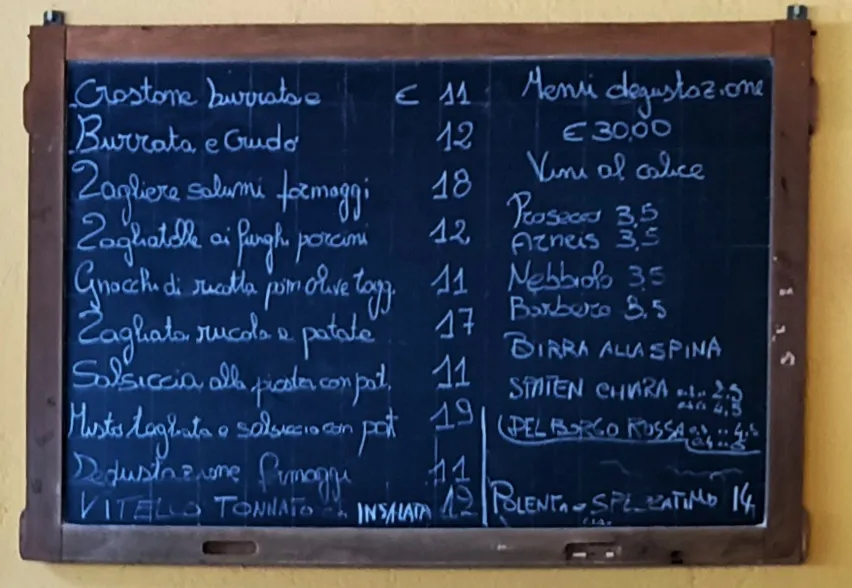 Crostone burrata e € 11
Burrata e Crudo 12
Tagliere salumi formaggi 18
Tagliatelle ai funghi porcini 12
Gnocchi di ricotta pom olive tagg. 11
Tagliata rucola e patate 17
Salsiccia alla piastra con pat. 11
Misto tagliata e salsiccia con pat 19
Degustazione formaggi 11
VITELLO TONNATO INSALATA 12
Menù degustazione
€ 30,00
Vini al calice
Prosecco 3,5
Arneis 3,5
Nebbiolo 3,5
Barbera 3,5
BIRRA ALLA SPINA
CHIARA
DEL BORGO ROSSA
POLENTA e SPEZZATINO 14